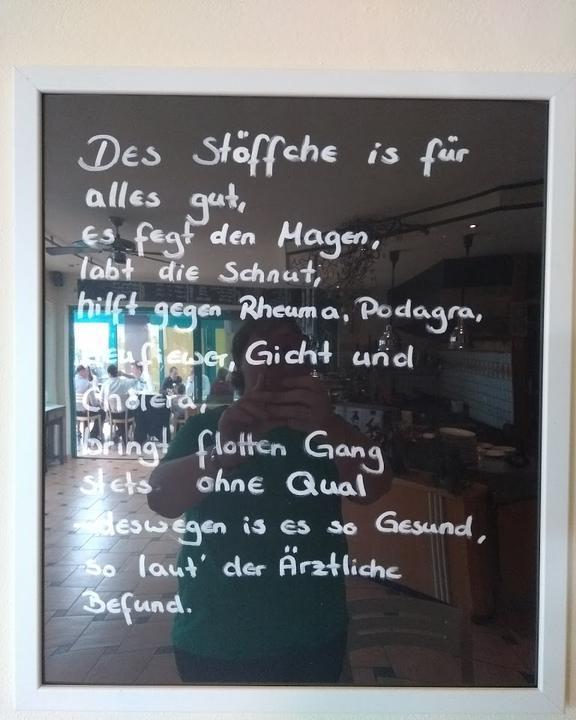 Des Stöffche is für
alles gut,
es fegt den Magen,
labt die Schnut,
hilft gegen Rheuma, Podagra,
Heufiewer, Gicht und
Cholera,
bringt flotten Gang
stets ohne Qual
- deswegen is es so Gesund,
so laut' der Ärztliche
Befund.